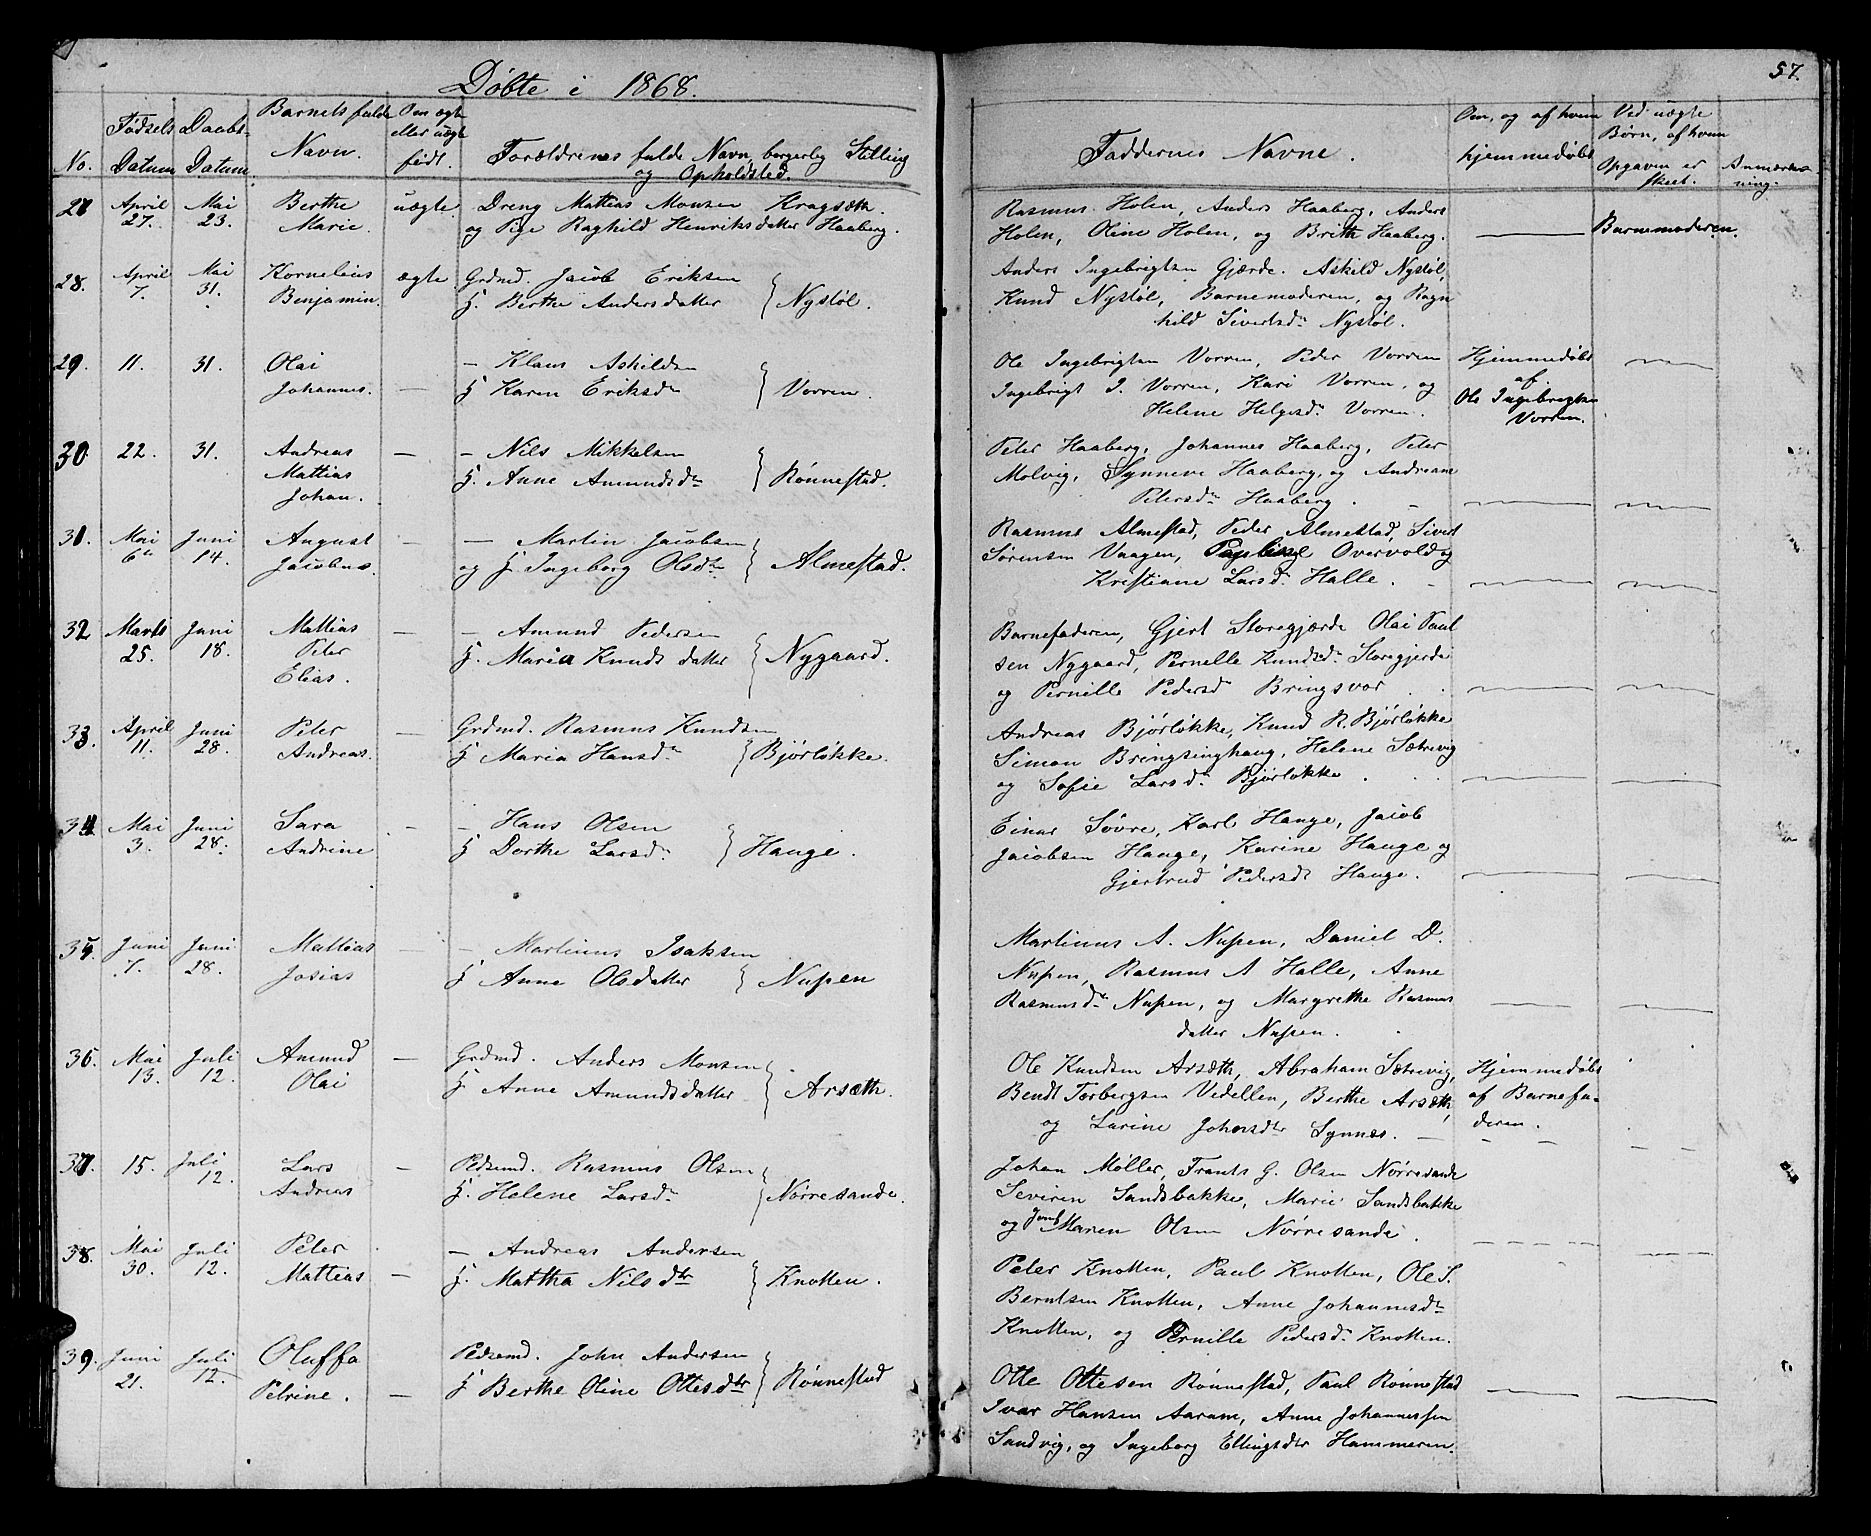 57.
Døbte i 1868.
No. Fødsels Datum Daabs- Datum. Barnets fulde Navn. Om ægte eller uægte født. Forældrenes fulde Navn, borgerlig Stilling og Opholdsted. Faddernes Navne. Om, og af hvem hjemmedøbt Ved uægte Børn, af hvem Opgaven er skeet. Anmærkning.
27 April 27. Mai 23. Berthe Marie. uægte. Dreng Mattias Monsen Kragsæth.
og Pige Raghild Henriksdatter Haaberg.
Rasmus Holen, Anders Haaberg, Anders
Holen, Oline Holen, og Brithe Haaberg. Barnemoderen.
28. April 7. Mai 31. Kornelius Benjamin. ægte Grdmd. Jacob Eriksen
H. Berthe Andersdatter } Nystøl.
Anders Ingebrigtsen Gjærde. Askild Nystøl,
Knud Nystøl, Barnemoderen, og Ragn
hild Sivertsdr Nystøl.
29. 11. 31. Olai Johannes. — — Klaus Askildsn
H. Karen Eriksdr } Vorren.
Ole Ingebrigtsn Vorren, Peder Vorren
Ingebrigt I. Vorren, Kari Vorren, og
Helene Helgesdr Vorren.
Hjemmedøbt
af
Ole Ingebrigtsn
Vorren.
30 22. 31. Andreas Mattias Johan. — — Nils Mikkelsen
H. Anne Amundsdr } Rønnestad.
Peter Haaberg, Johannes Haaberg, Peter
Molvig, Synneve Haaberg, og Andreane
Petersdr Haaberg.
31. Mai 6te Juni 14. August Jacobus. — — Martin Jacobsen
og H. Ingeborg Olsdtr } Almestad.
Rasmus Almestad, Peder Almestad, Sivert
Sørensen Vaagen, Overvold og
Kristiane Larsd. Halle.
32 Marts 25. Juni 18. Mattias Peter Elias. — — Amund Pedersen
H. Maria Knudsdatter } Nygaard.
Barnefaderen, Gjert Storegjærde Olai Paul
sen Nygaard, Pernelle Knudsd. Storegjerde
og Pernille Pedersd Bringsvor
33. April 11. Juni 28. Peter Andreas. — Grdmd. Rasmus Knudsen
H. Maria Hansdr } Bjørløkke.
Andreas Bjørløkke, Knud R. Bjørløkke
Simon Bringsinghaug, Helene Sætrevig
og Sofie Larsdr Bjørløkke.
34 Mai 3. Juni 28. Sara Andrine — — Hans Olsen
H Dorthe Larsd. } Hauge.
Einar Søvre, Karl Hauge, Jacob
Jacobsen Hauge, Karine Hauge og
Gjertrud Pedersdr Hauge.
35. Juni 7. Juni 28. Mattias Josias — — Martinus Isaksen
H Anne Olsdatter } Nupen
Martinus A. Nupen, Daniel D.
Nupen, Rasmus A Halle, Anne
Rasmusdr Nupen, og Margrethe Rasmus
datter Nupen.
36. Mai 13. Juli 12. Amund Olai — Grdmd. Anders Monsen
H Anne Amundsdatter } Arsæth.
Ole Knudsen Arsæth, Abraham Sætrevig,
Bendt Torbergsen Vedellen, Berthe Arsæth,
og Larine Johnsdtr Synnes. —
Hjemmedøbt
af Barnefa-
deren.
37. 15. Juli 12. Lars Andreas — Pdsemd. Rasmus Olsen
H. Helene Larsdr } Nørresande.
Johan Møller, Frants G. Olsen Nørresande
Severen Sandsbakke, Marie Sandsbakke
og Jomf Maren Olsen Nørresande.
38. Mai 30. Juli 12. Peter Mattias — — Andreas Andersen
H. Mattha Nilsdtr } Knotten.
Peter Knotten, Paul Knotten, Ole S.
Berntsen Knotten, Anne Johannesdr
Knotten, og Pernille Pedersdr Knotten.
39. Juni 21. Juli 12. Oluffa Petrine. — Pdsemd. John Andersen
H Berthe Oline Ottesdtr } Rønnestad
Otte Ottesen Rønnestad, Paul Rønnestad
Ivar Hansen Aaram, Anne Johannessen
Sandvig, og Ingeborg Ellingsdtr Hammeren.